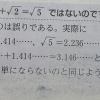 +√2 = √5 ではないので
のは誤りである。実際に
.414……, √5=2.236……
+1.414……=3.146……と
単にならないのと同じよう